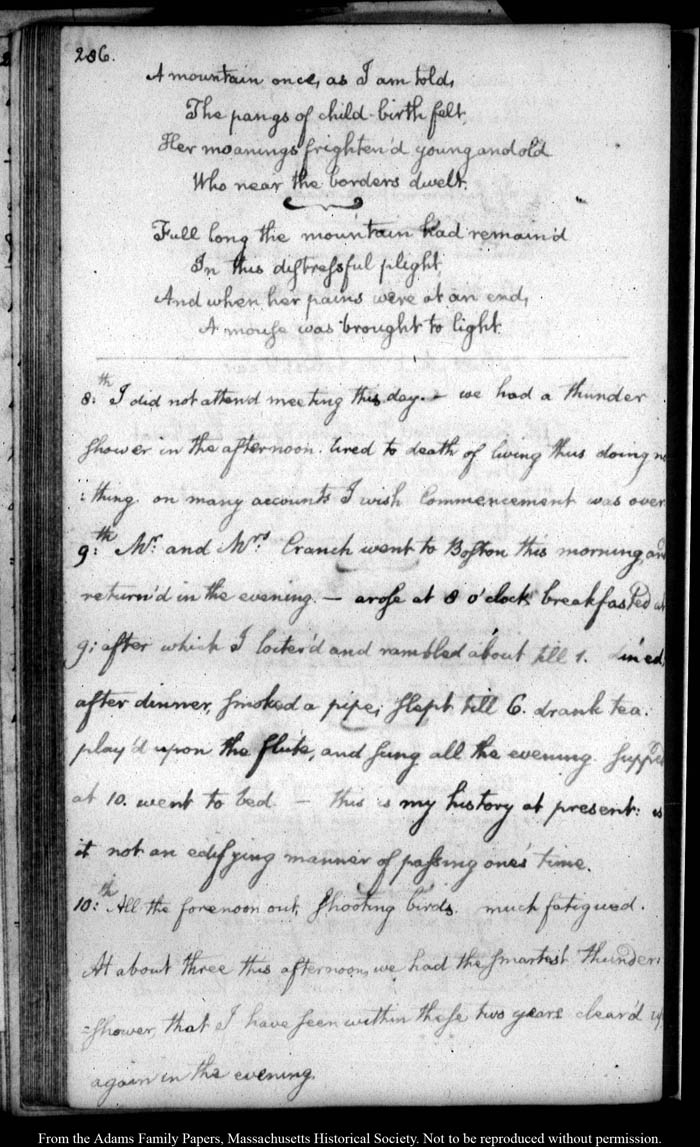 286.
A mountain once, as I am told,
The pangs of child-birth felt,
Her moanings frighten'd young and old
Who near the borders dwelt.
Full long the mountain had remain'd
In this distressful plight,
And when her pains were at an end,
A mouse was brought to light.
8:th I did not attend meeting this day. — we had a thunder
shower in the afternoon. tired to death of living thus doing no
:thing. on many accounts I wish Commencement was over
9:th Mr. and Mrs. Cranch went to Boston this morning, and
return'd in the evening. — arose at 8 o'clock, breakfasted at
9; after which I loiter'd and rambled about till 1. dined,
after dinner, smoked a pipe; slept till 6. drank tea.
play'd upon the flute, and sung all the evening. supped
at 10. went to bed — this is my history at present: is
it not an edifying manner of passing one's time.
10:th All the forenoon out, shooting birds. much fatigued.
At about three this afternoon, we had the smartest thunder:
:shower, that I have seen within these two years clear'd up
again in the evening.
From the Adams Family Papers, Massachusetts Historical Society. Not to be reproduced without permission.